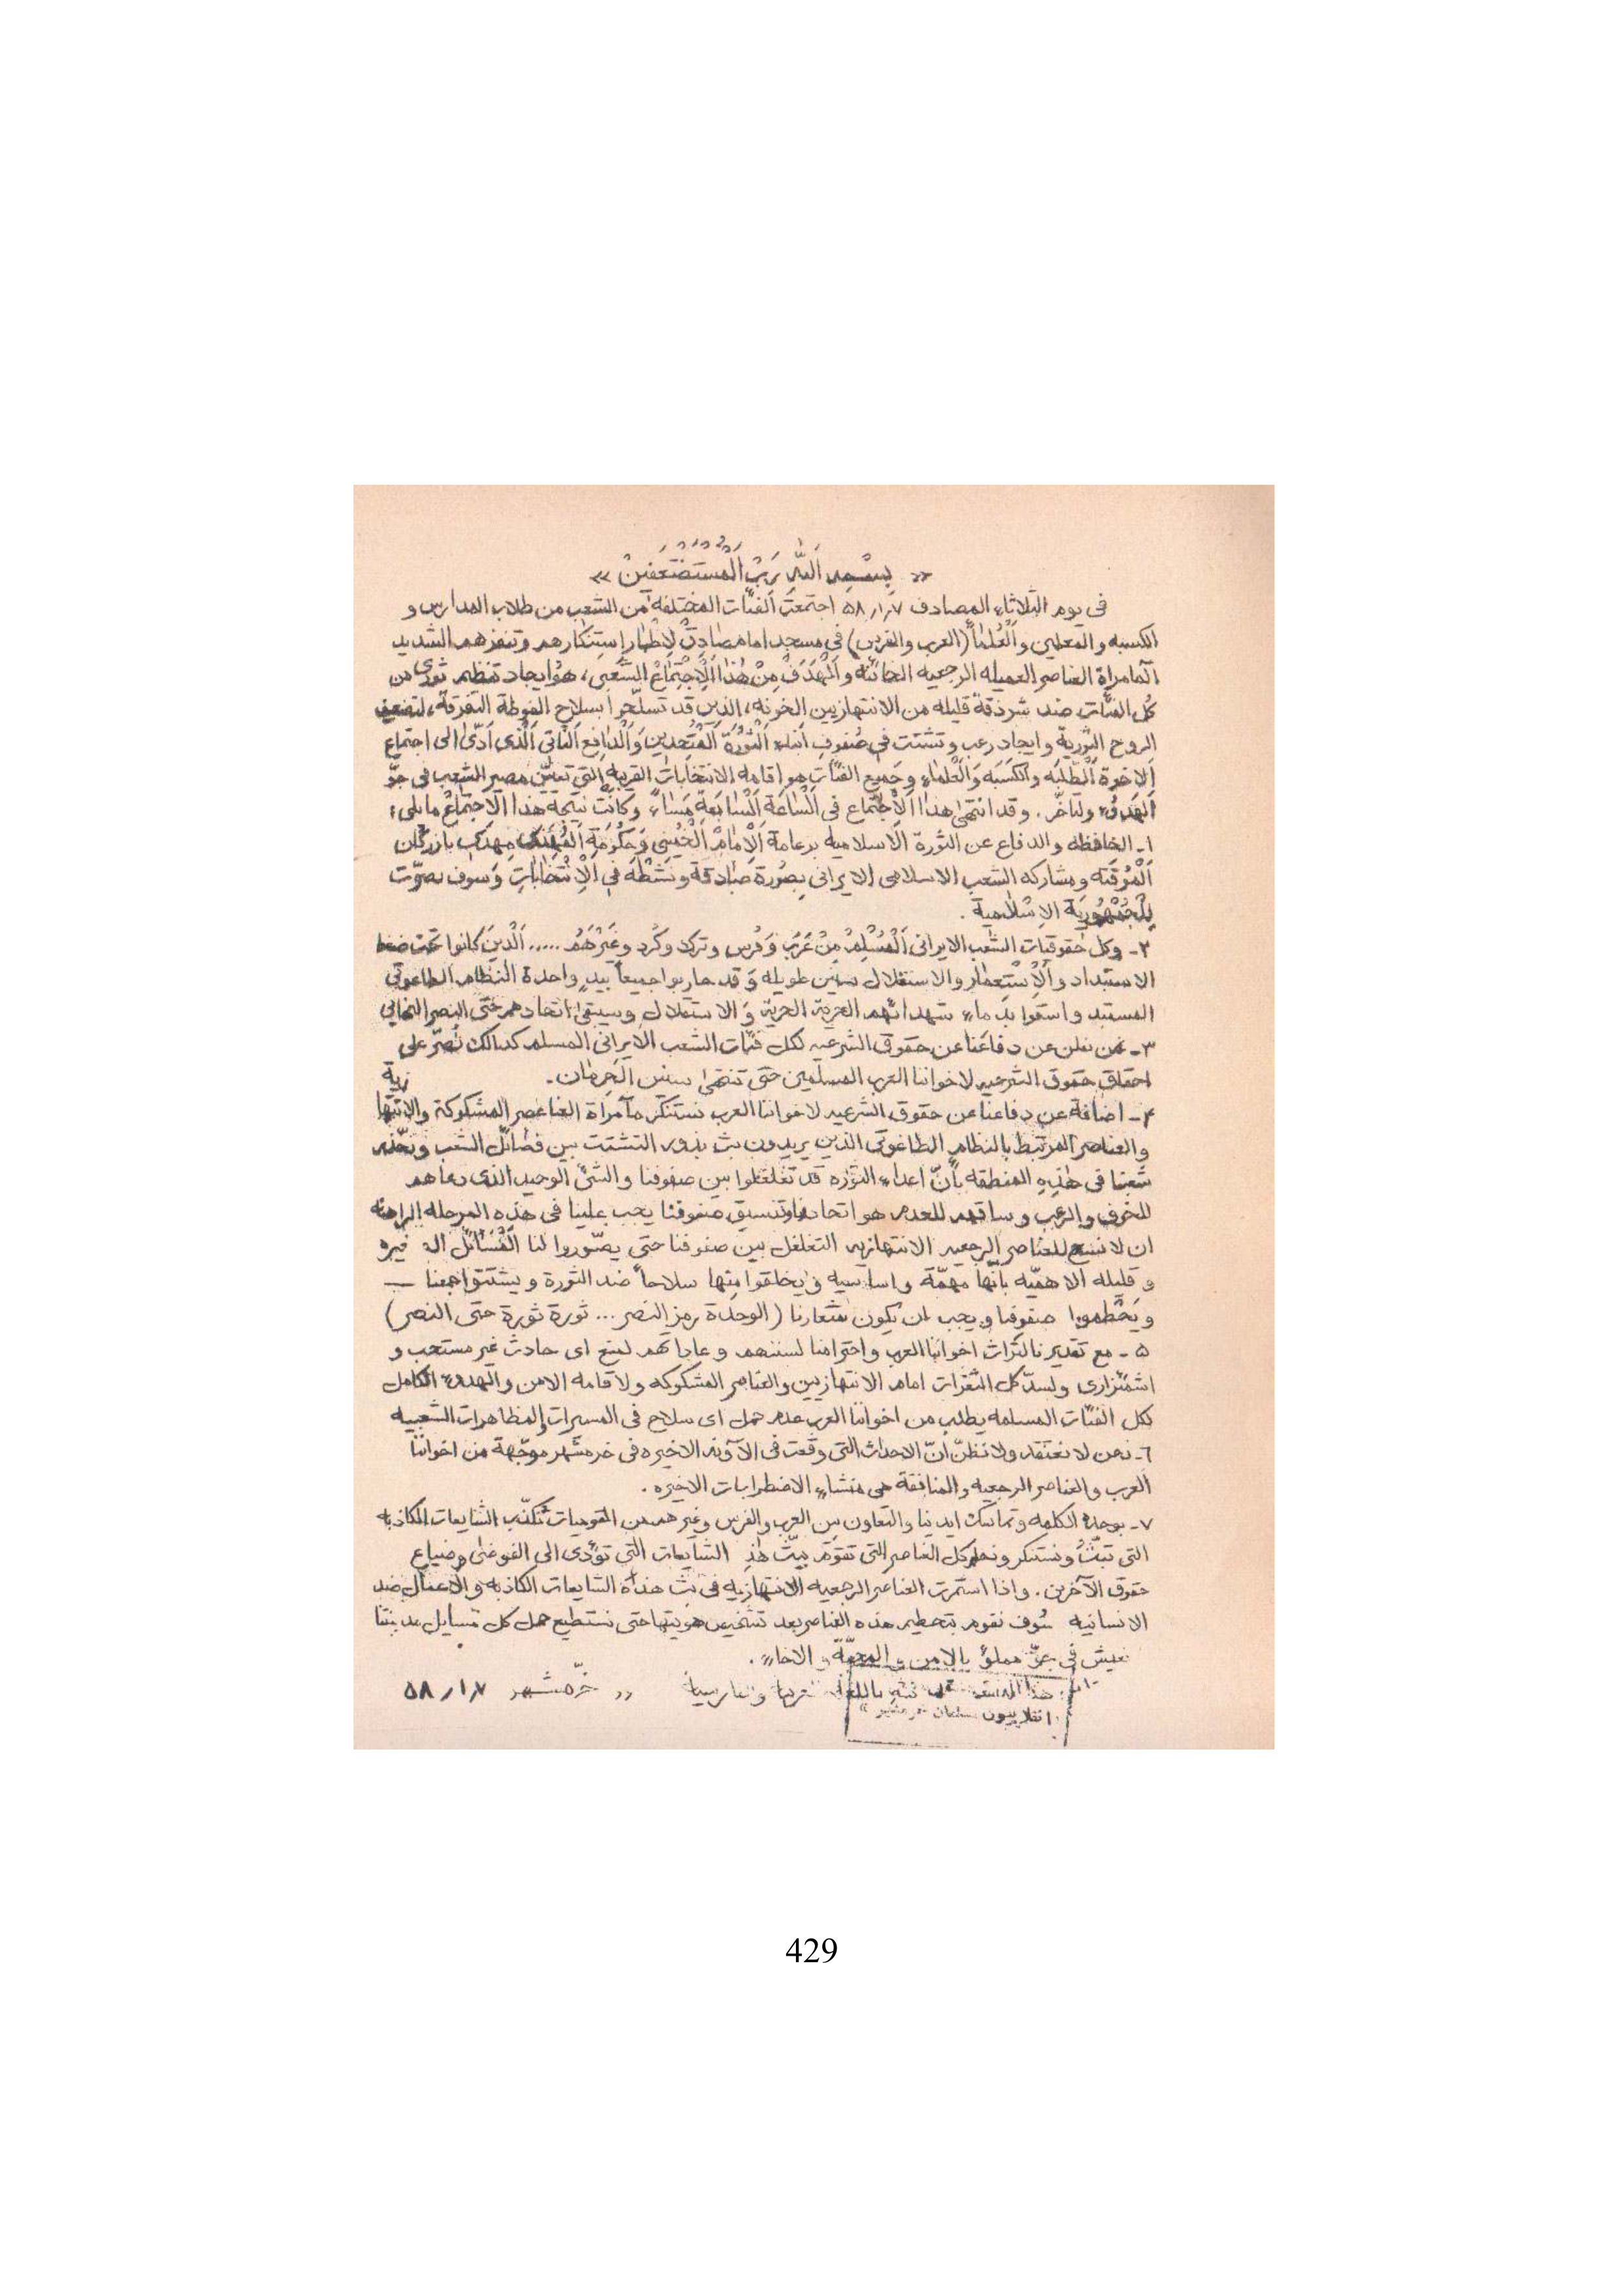 « بِسْمِ اللهِ رَبِّ الْمُسْتَضْعَفِينْ »
فى يوم الثلاثاء المصادف ٥٨٫١٫٧ اجتمعت الفئات المختلفه من الشعب من طلاب المدارس و
الكسبه والمعلمين والعلماً (العرب والفرس) فى مسجد امام صادق لاظهار استنكارهم وتنفرهم الشديد
العناصر العميله الرجعيه الخائنه والهدف من هذا الاجتماع الشعبى، هو ايجاد تنظيم ثورى من
كل الفئات ضد شرذقة قليله من الانتهازيين الخونه، الذين قد تسلّحوا بسلاح التفرقة، لتضعيف
الروح الثورية وايجاد رعب وتشتت فى صفوف ابناء الثورة المتحدين والدافع الثانى الذى ادّى الى اجتماع
الاخوة الطلبه والكسبه والعلماء وجميع الفئات هو اقامه الانتخابات القريبه التى تعيّن مصير الشعب فى جوّ
الهدوء. وقد انتهى هذا الاجتماع فى الساعة السابعة مساءً وكانت نتيجة هذا الاجتماع مايلى:
١ـ المحافظه والدفاع عن الثورة الاسلاميه بزعامة الامام الخمينى وحكومة المهندس مهدى بازركان
المؤقته ومشاركه الشعب الاسلامى الايرانى بصورة صادقة ونشطه فى الانتخابات وسوف يصوّت
للجمهورية الاسلامية .
٢ـ وكل حقوقيات الشعب الايرانى المسلم من عرب وفرس وترك وكرد وغيرهم ..... الذين كانوا تحت ضغط
الاستبداد والاستعمار والاستغلال سنين طويله وقد حاربوا جميعاً بيدٍ واحدة النظام الطاغوتى
المستبد واسقوا بدماء شهدائهم الحرية والاستقلال وسيبقى اتحادهم حتى النصر النهائى
٣ـ نحن نعلن عن دفاعنا عن حقوق الشرعيه لكل فئات الشعب الايرانى المسلم كذالك نُصرّ على
احقاق حقوق الشرعيه لاخواننا العرب المسلمين حتى تنتهى سنين الحرمان.
٤ـ اضافة عن دفاعنا عن حقوق الشرعيه لاخواننا العرب نستنكر مآمراة العناصر المشكوكة والانتهازية
والعناصر المرتبط بالنظام الطاغوتى الذين يريدون بث بذور التشتت بين فصائل الشعب ونحذّر
شعبنا فى هذه المنطقه بأنّ اعداء الثوره قد تغلغلوا بين صفوفنا والشئ الوحيد الذى دعاهم
للخوف والرعب وساقهم للعدم هو اتحادنا وتنسيق صفوفنا يجب علينا فى هذه المرحله الراهنه
ان لا نسمح للعناصر الرجعيه الانتهازيه التغلغل بين صفوفنا حتى يصّوروا لنا المسائل
وقليله الاهميّه بأنها مهمّة واساسيه ويخلقوا منها سلاحاً ضد الثورة ويشتتوا جمعنا —
ويحطموا صفوفنا ويجب ان يكون شعارنا (الوحدة رمز النصر ... ثورة ثورة حتى النصر)
٥ ـ مع تقديرنا لتراث اخواننا العرب واحترامنا لسننهم وعاداتهم لمنع اى حادث غير مستحب و
اشمئزارى ولسدّ كل الثغرات امام الانتهازيين والعناصر المشكوكه ولاقامه الامن والهدوء الكامل
لكل الفئات المسلمه يطلب من اخواننا العرب عدم حمل اى سلاح فى المسيرات والمظاهرات الشعبيه
٦ـ نحن لا نعتقد ولا نظنّ انّ الاحداث التى وقعت فى الآونه الاخيره فى خرمشهر موجّهة من اخواننا
العرب والعناصر الرجعيه والمنافقة هى منشاء الاضطرابات الاخيره .
٧ـ بوحدة الكلمه وتماسك ايدينا والتعاون بين العرب والفرس وغيرهم من القوميات نكذّب الشايعات الكاذبه
التى تبثّ ونستنكر كل العناصر التى تقوم ببثّ هذه الشايعات التى تؤدى الى الفوضى وضياع
حقوق الآخرين. واذا استمرت العناصر الرجعيه الانتهازيه فى بث هذه الشايعات الكاذبه والاعمال ضد
الانسانيه سوف نقوم بتحطيم هذه العناصر بعد تشخيص هويتها حتى نستطيع حل كل مسايل مدينتنا
نعيش فى جوّ مملوّ بالامن والمحبّة والاخاء .
هذا باللغة خرّمشهر ٥٨٫١٫٧
انقلابيون مسلمان خرمشهر
429